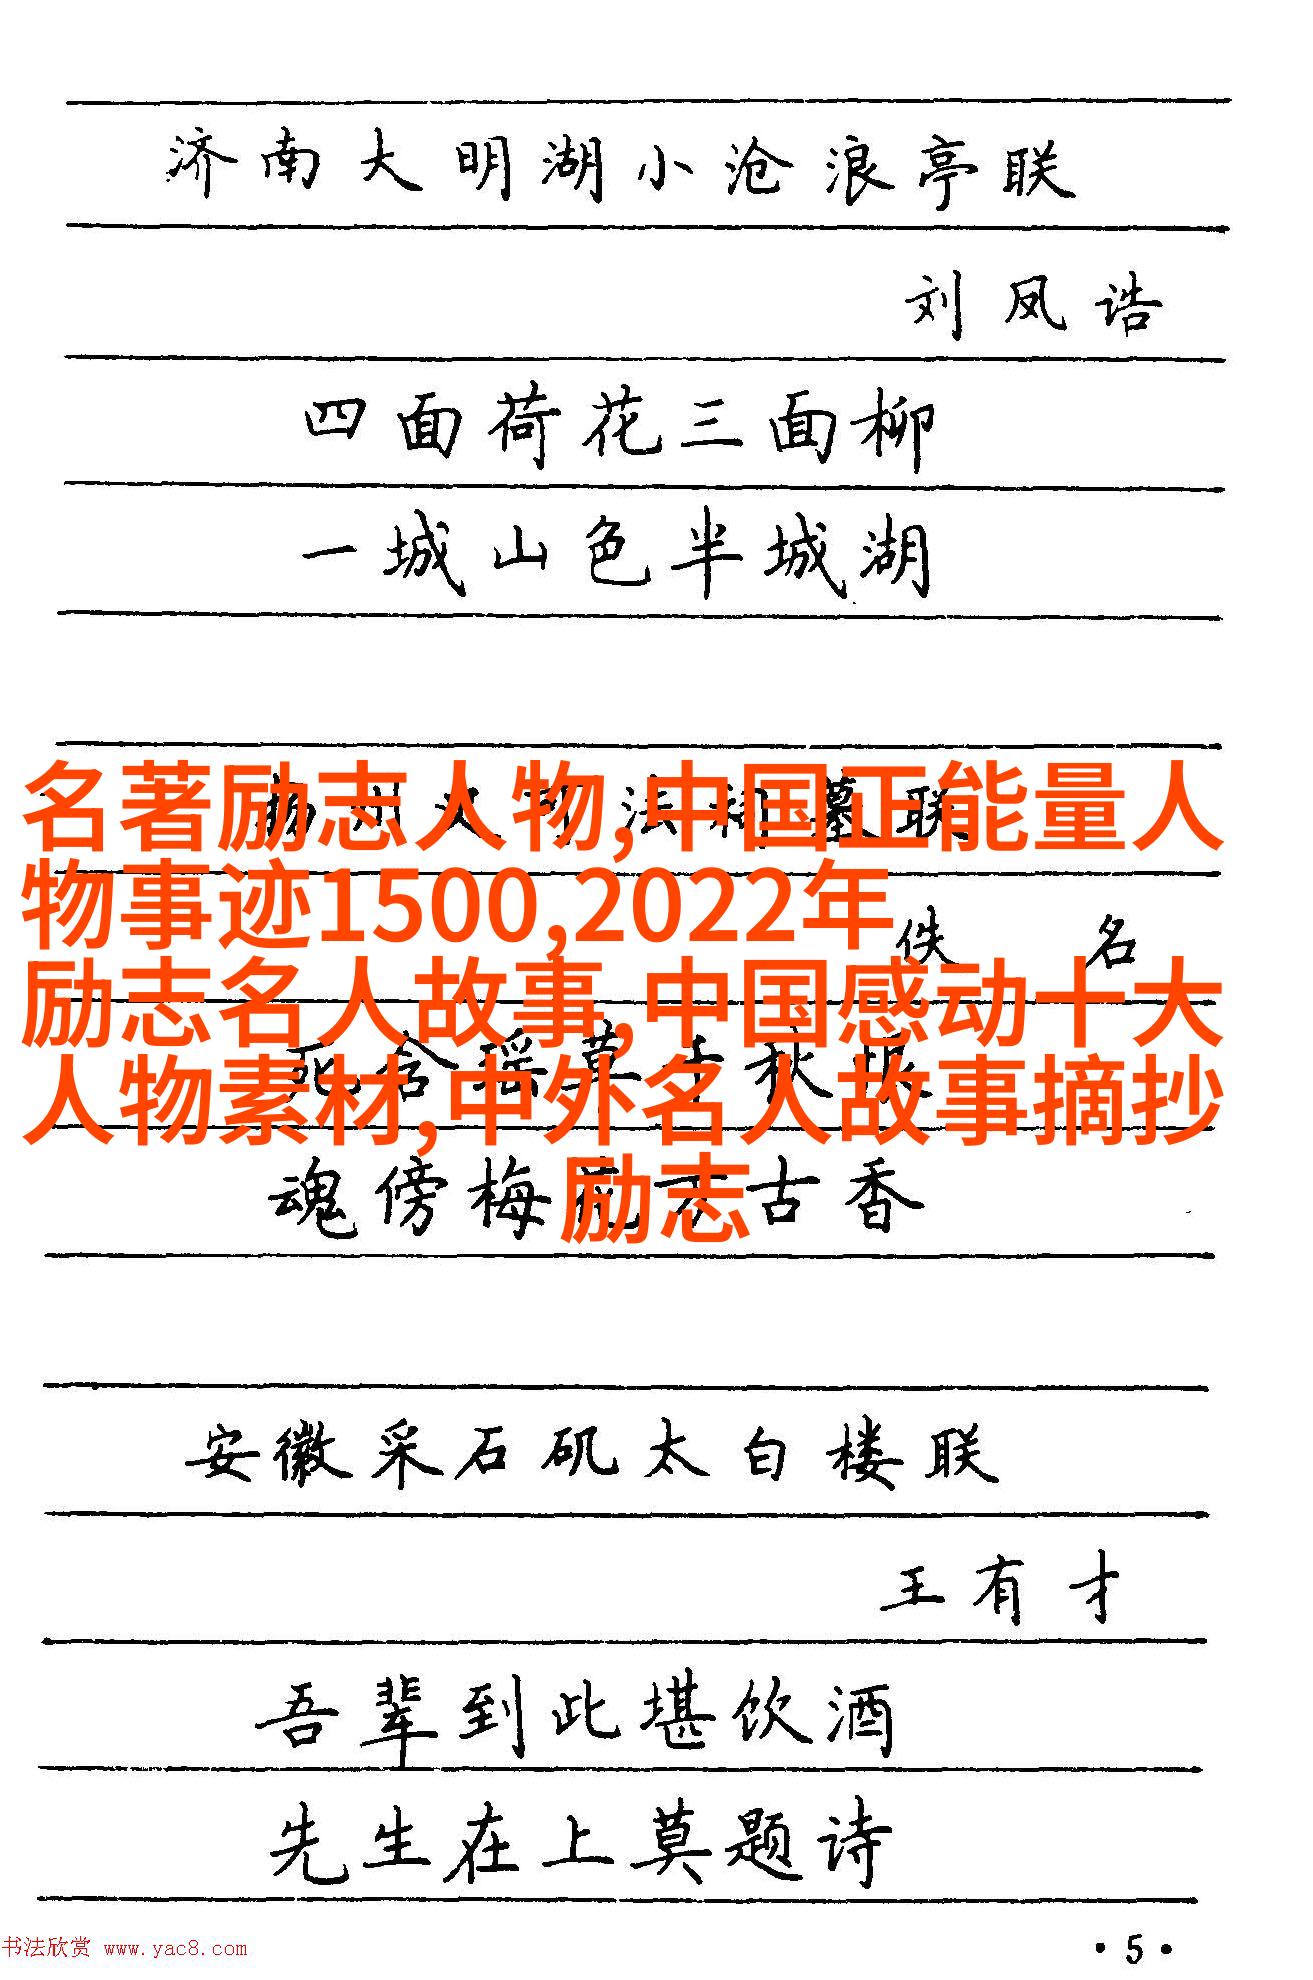 济南大明湖小沧浪亭联
刘凤诰
四面荷花三面柳
一城山色半城湖
名著励志人物,中国正能量人
物事迹1500,2022年
励志名人故事,中国感动十大
人物素材,中外名人故事摘抄
励志
联
佚名
魂傍梅花万古香
安徽采石矶太白楼联
王有才
吾辈到此堪饮酒
先生在上莫题诗
书法欣赏 www.yac8.com
·5·